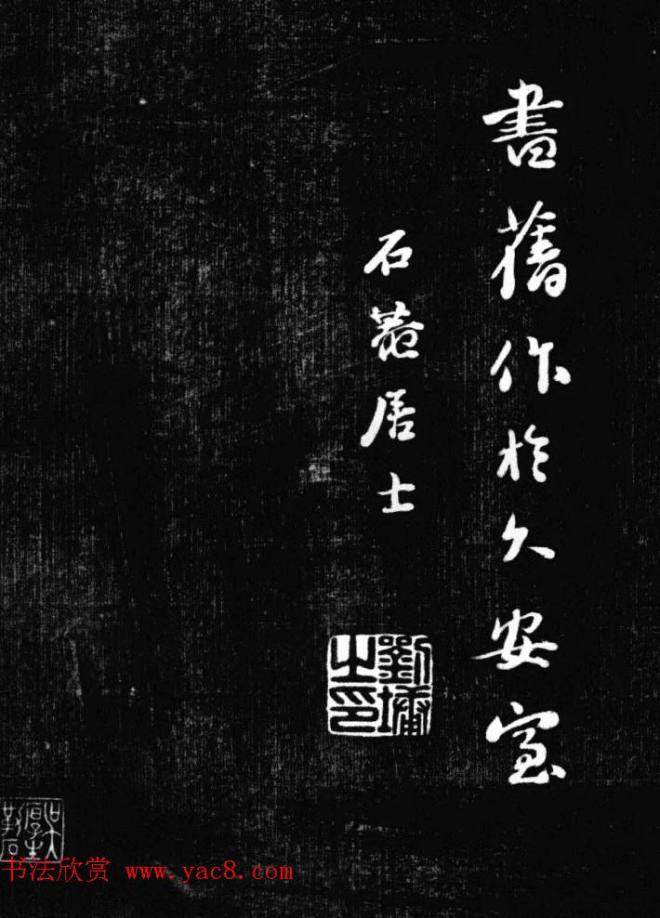 書舊作於久安室
石菴居士
劉墉之印
书法欣赏 www.yac8.com